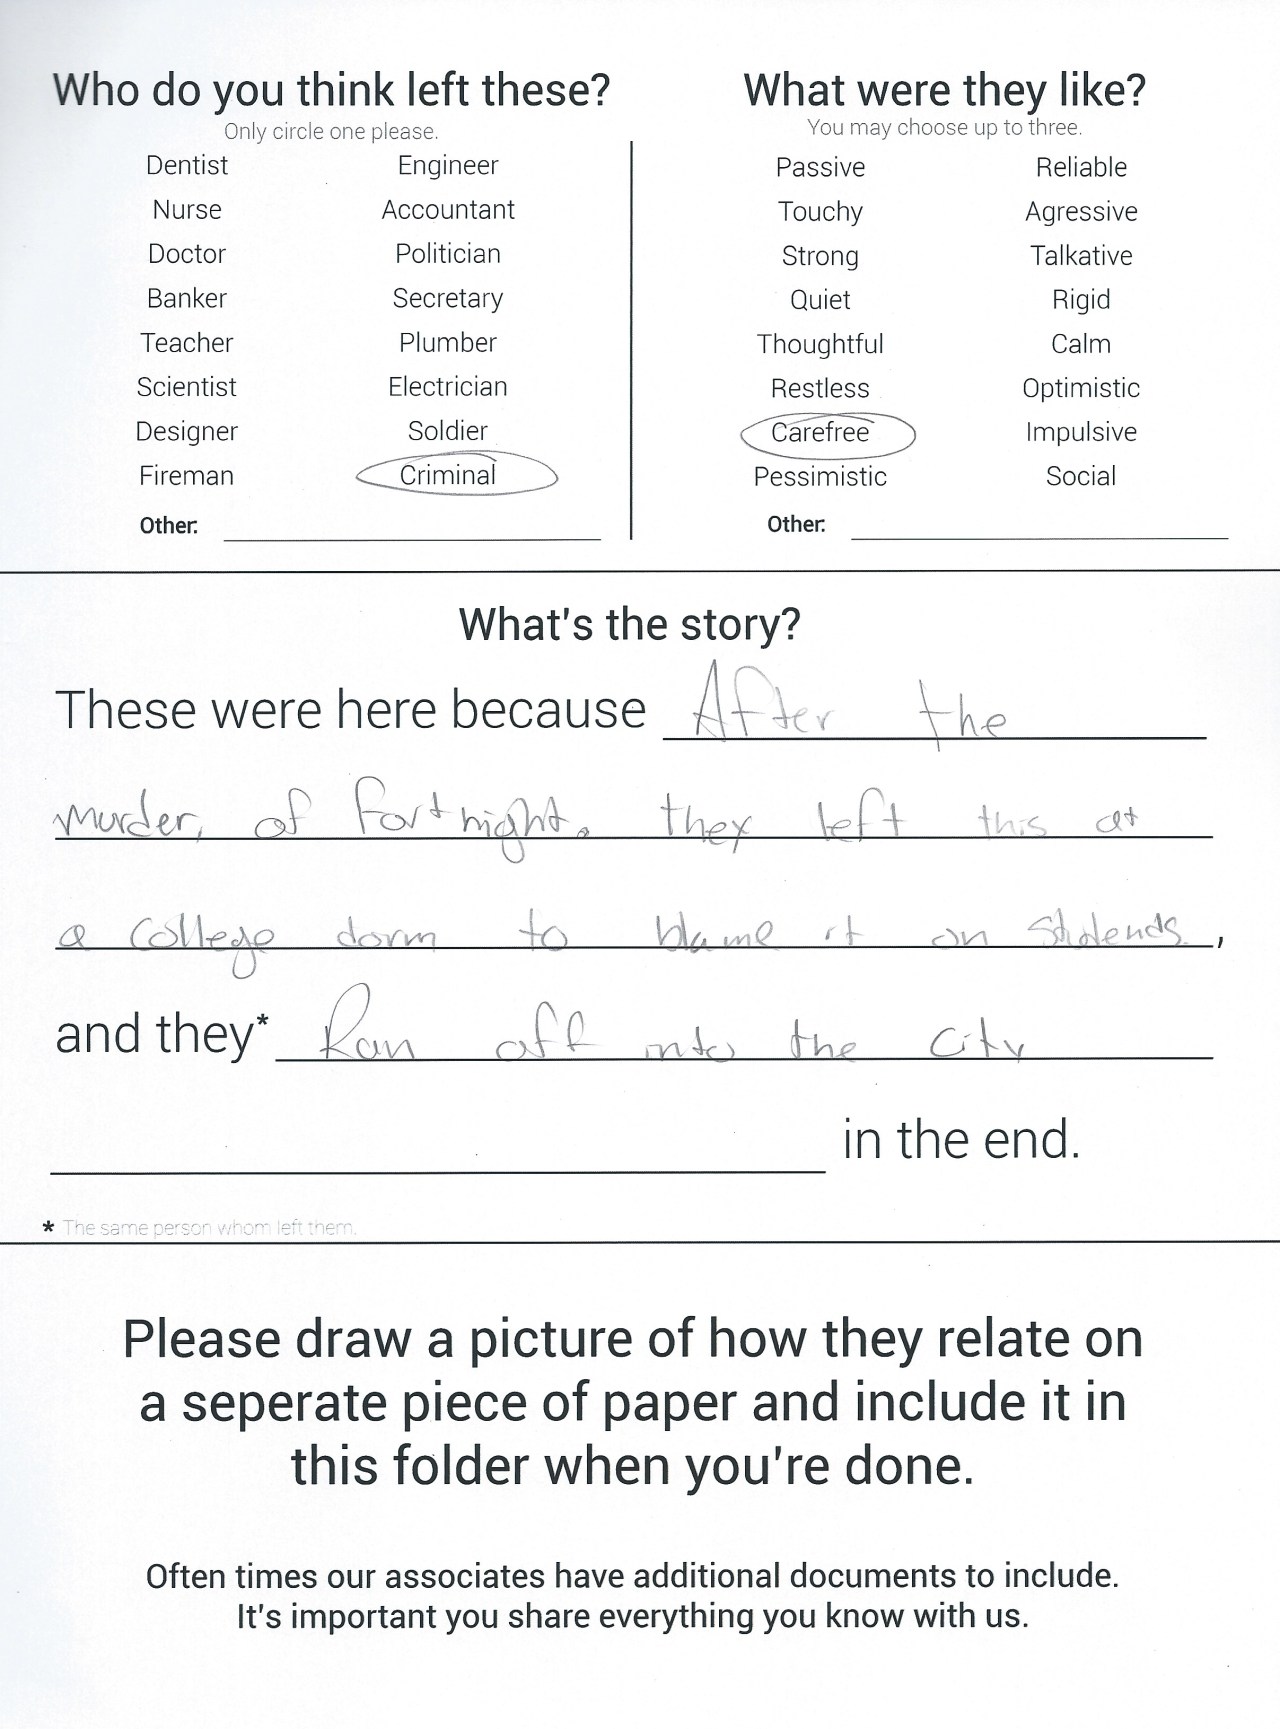 Who do you think left these?
Only circle one please.
Dentist Engineer
Nurse Accountant
Doctor Politician
Banker Secretary
Teacher Plumber
Scientist Electrician
Designer Soldier
Fireman Criminal
Other:
What were they like?
You may choose up to three.
Passive Reliable
Touchy Agressive
Strong Talkative
Quiet Rigid
Thoughtful Calm
Restless Optimistic
Carefree Impulsive
Pessimistic Social
Other:
What's the story?
These were here because After the
murder, of fortnight, they left this at
a college dorm to blame it on Stutends.,
and they* Ran off into the city
in the end.
* The same person whom left them.
Please draw a picture of how they relate on
a seperate piece of paper and include it in
this folder when you're done.
Often times our associates have additional documents to include.
It's important you share everything you know with us.